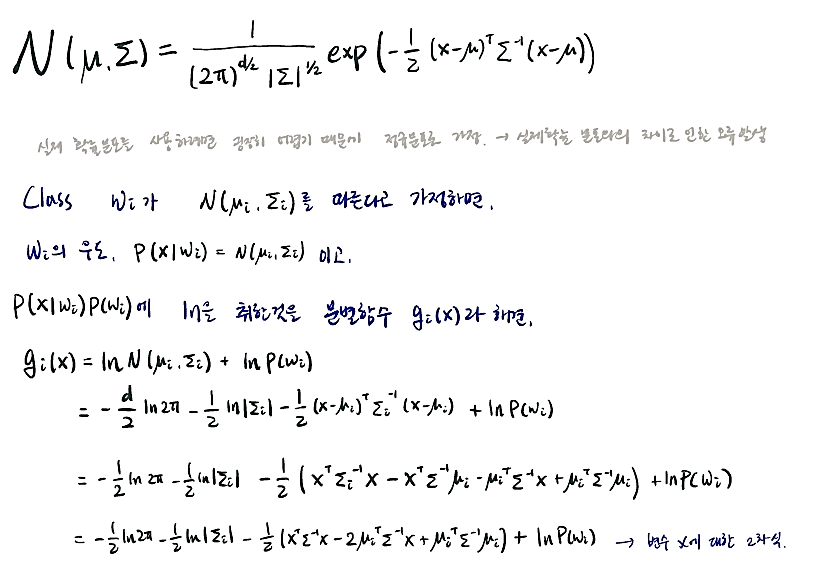 N(μ,Σ) = 1/((2π)^{d/2} |Σ|^{1/2}) exp(-1/2 (x-μ)^T Σ^{-1} (x-μ))
실제 확률분포를 사용하려면 굉장히 어렵기 때문에 정규분포로 가정. → 실제확률 분포와의 차이로 인한 오류발생
Class wi가 N(μi, Σi)를 따른다고 가정하면,
wi의 우도, P(x|wi) = N(μi, Σi) 이고,
P(x|wi)P(wi)에 ln을 취한것을 분별함수 gi(x)라 하면,
gi(x) = ln N(μi, Σi) + ln P(wi)
= - d/2 ln 2π - 1/2 ln|Σi| - 1/2 (x-μi)^T Σi^{-1} (x-μi) + ln P(wi)
= - 1/2 ln 2π - 1/2 ln|Σi| - 1/2 (x^T Σi^{-1} x - x^T Σ^{-1} μi - μi^T Σ^{-1} x + μi^T Σ^{-1} μi) + ln P(wi)
= - 1/2 ln 2π - 1/2 ln|Σi| - 1/2 (x^T Σ^{-1} x - 2μi^T Σ^{-1} x + μi^T Σ^{-1} μi) + ln P(wi) → 변수 x에 대한 2차식.